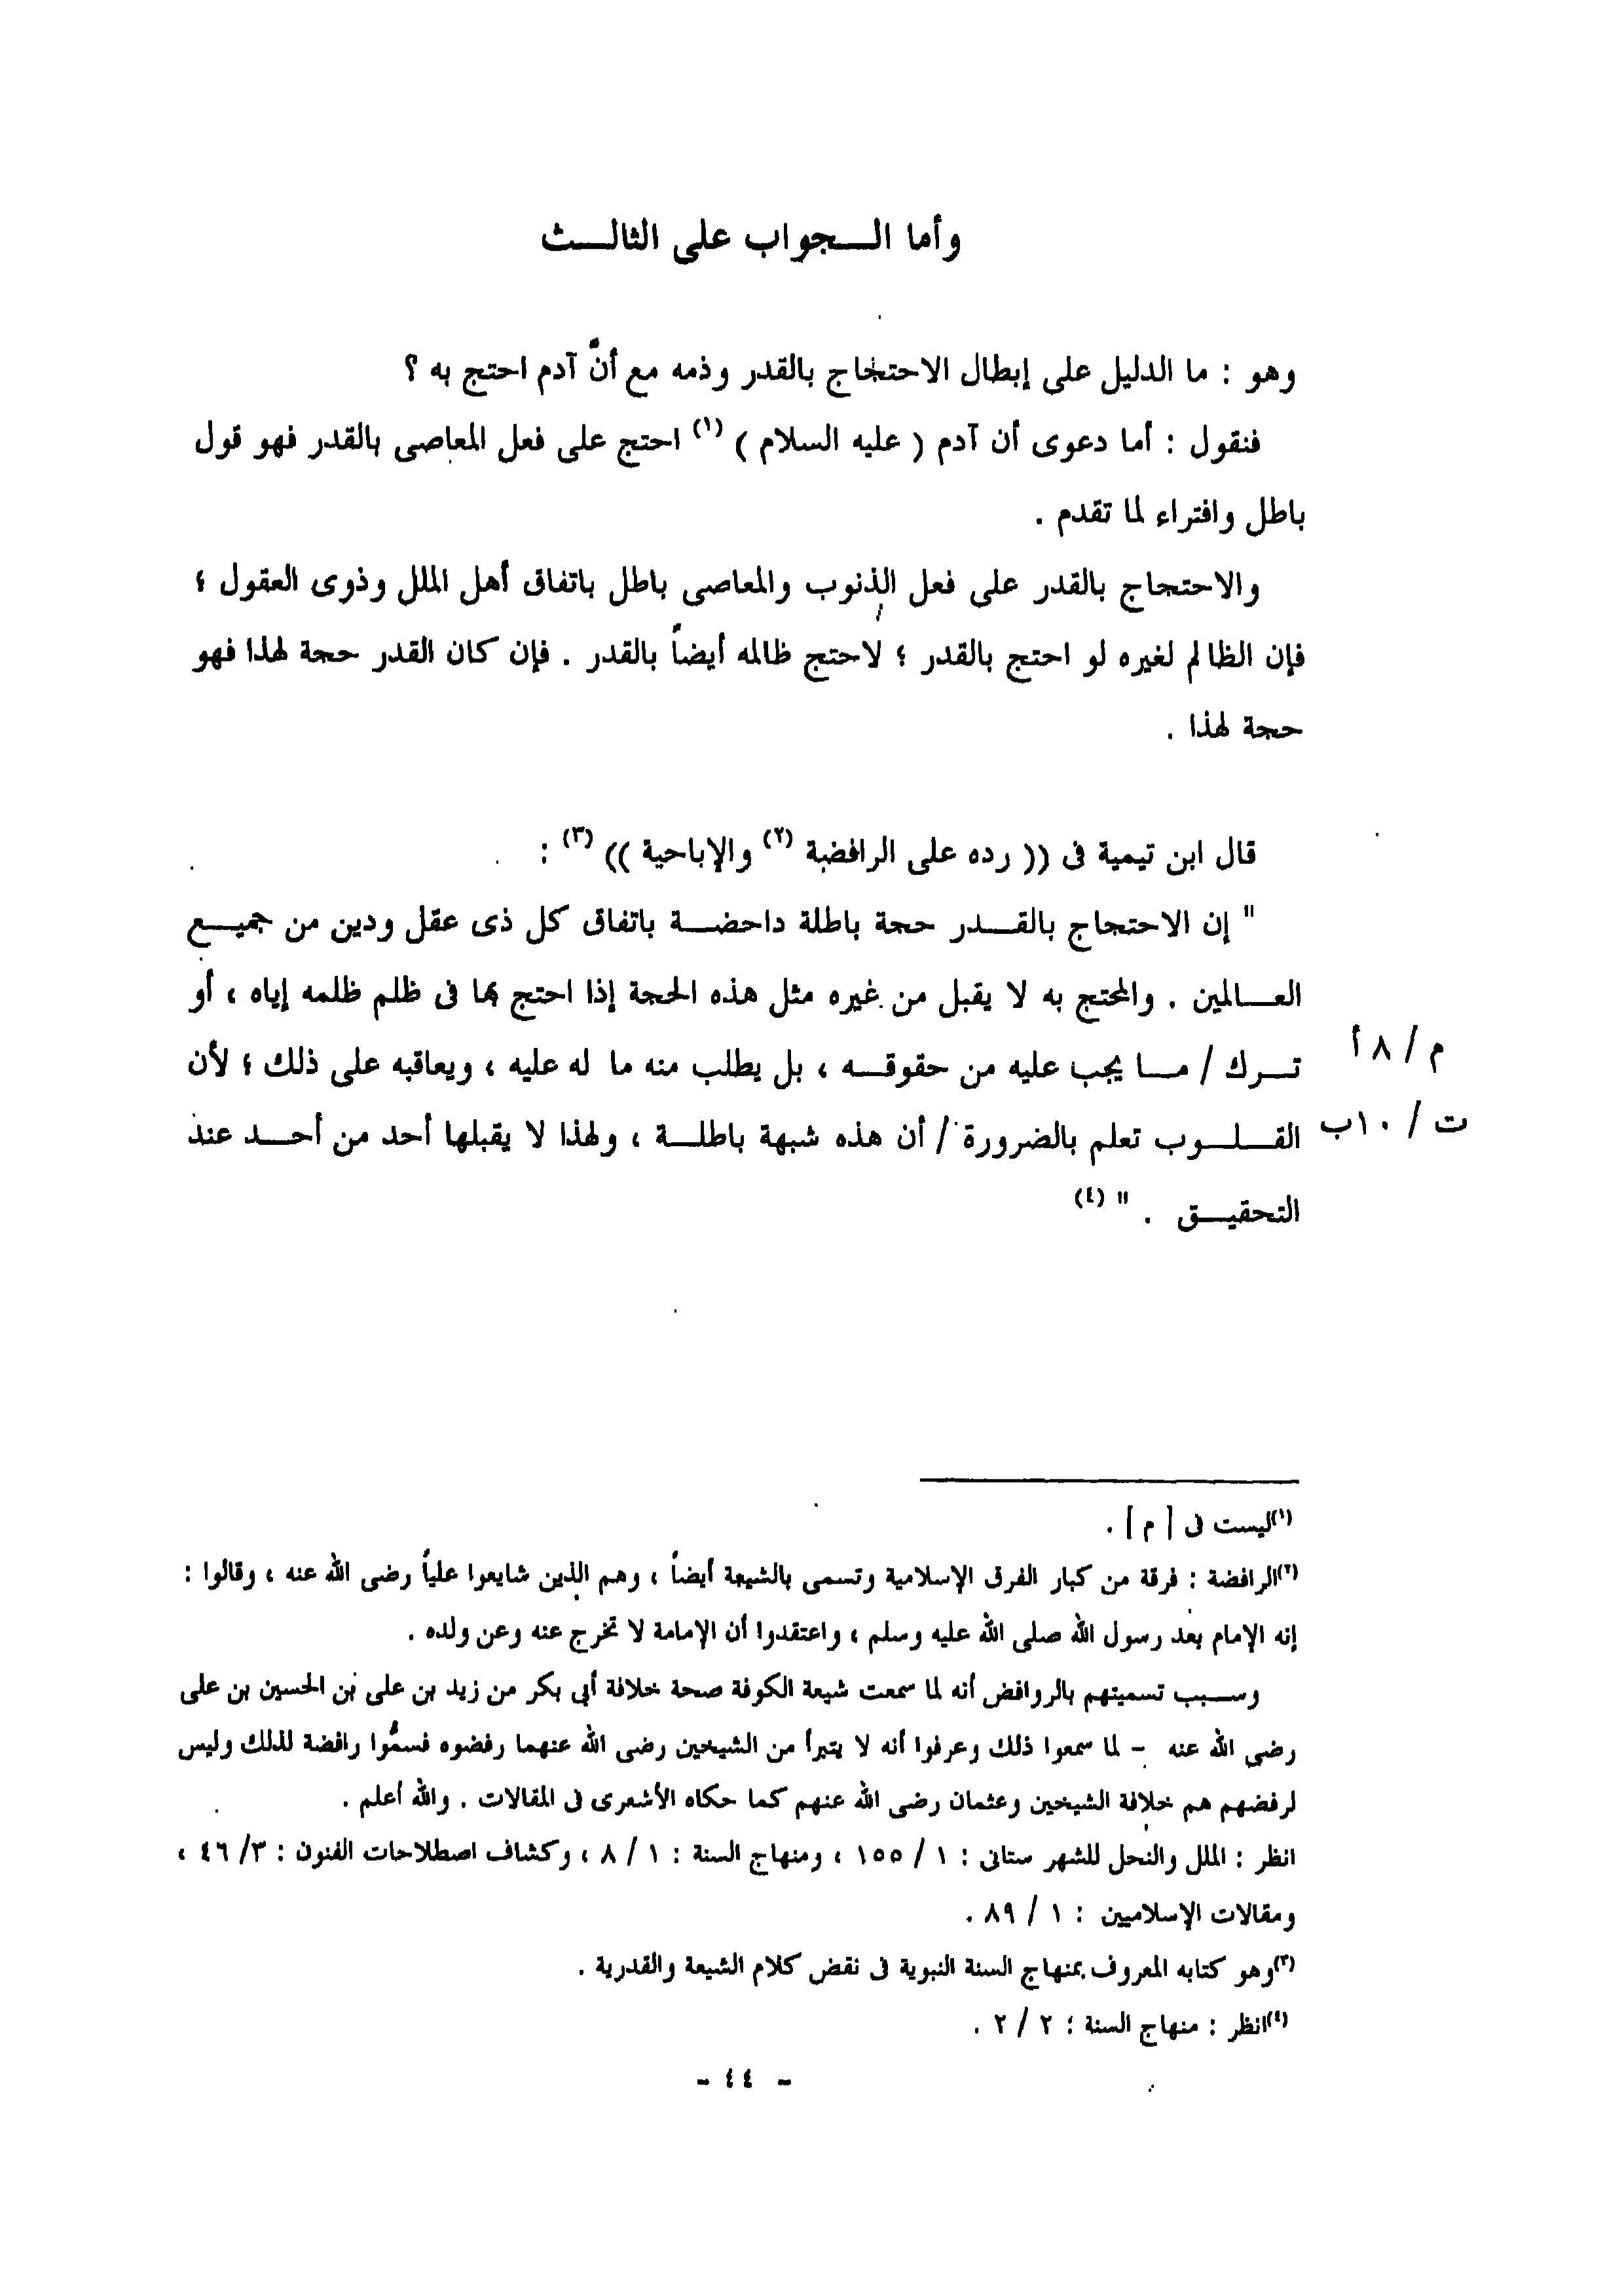 وأما الـــجواب على الثالـــث
وهو : ما الدليل على إبطال الاحتجاج بالقدر وذمه مع أنَّ آدم احتج به ؟
فنقول : أما دعوى أن آدم ( عليه السلام ) (١) احتج على فعل المعاصى بالقدر فهو قول
باطل وافتراء لما تقدم .
والاحتجاج بالقدر على فعل الذنوب والمعاصى باطل باتفاق أهل الملل وذوى العقول ؛
فإن الظالم لغيره لو احتج بالقدر ؛ لاحتج ظالمه أيضاً بالقدر . فإن كان القدر حجة لهذا فهو
حجة لهذا .
قال ابن تيمية فى (( رده على الرافضة (٢) والإباحية )) (٣) :
" إن الاحتجاج بالقـــدر حجة باطلة داحضـــة باتفاق كل ذى عقل ودين من جميـــع
العـــالمين . والمحتج به لا يقبل من غيره مثل هذه الحجة إذا احتج بها فى ظلم ظلمه إياه ، أو
تـــرك / مـــا يجب عليه من حقوقـــه ، بل يطلب منه ما له عليه ، ويعاقبه على ذلك ؛ لأن
م / ٨ أ
القـــلـــوب تعلم بالضرورة / أن هذه شبهة باطلـــة ، ولهذا لا يقبلها أحد من أحـــد عند
ت / ١٠ب
التحقيـــق . " (٤)
(١)ليست فى [ م ] .
(٢)الرافضة : فرقة من كبار الفرق الإسلامية وتسمى بالشيعة أيضاً ، وهم الذين شايعوا علياً رضى الله عنه ، وقالوا :
إنه الإمام بعد رسول الله صلى الله عليه وسلم ، واعتقدوا أن الإمامة لا تخرج عنه وعن ولده .
وســـبب تسميتهم بالروافض أنه لما سمعت شيعة الكوفة صحة خلافة أبى بكر من زيد بن على بن الحسين بن على
رضى الله عنه - لما سمعوا ذلك وعرفوا أنه لا يتبرأ من الشيخين رضى الله عنهما رفضوه فسمُّوا رافضة لذلك وليس
لرفضهم هم خلافة الشيخين وعثمان رضى الله عنهم كما حكاه الأشعرى فى المقالات . والله أعلم .
انظر : الملل والنحل للشهر ستانى : ١ / ١٥٥ ، ومنهاج السنة : ١ / ٨ ، وكشاف اصطلاحات الفنون : ٣/ ٤٦ ،
ومقالات الإسلاميين : ١ / ٨٩ .
(٣)وهو كتابه المعروف بمنهاج السنة النبوية فى نقض كلام الشيعة والقدرية .
(٤)انظر : منهاج السنة ؛ ٢ / ٢ .
- ٤٤ -